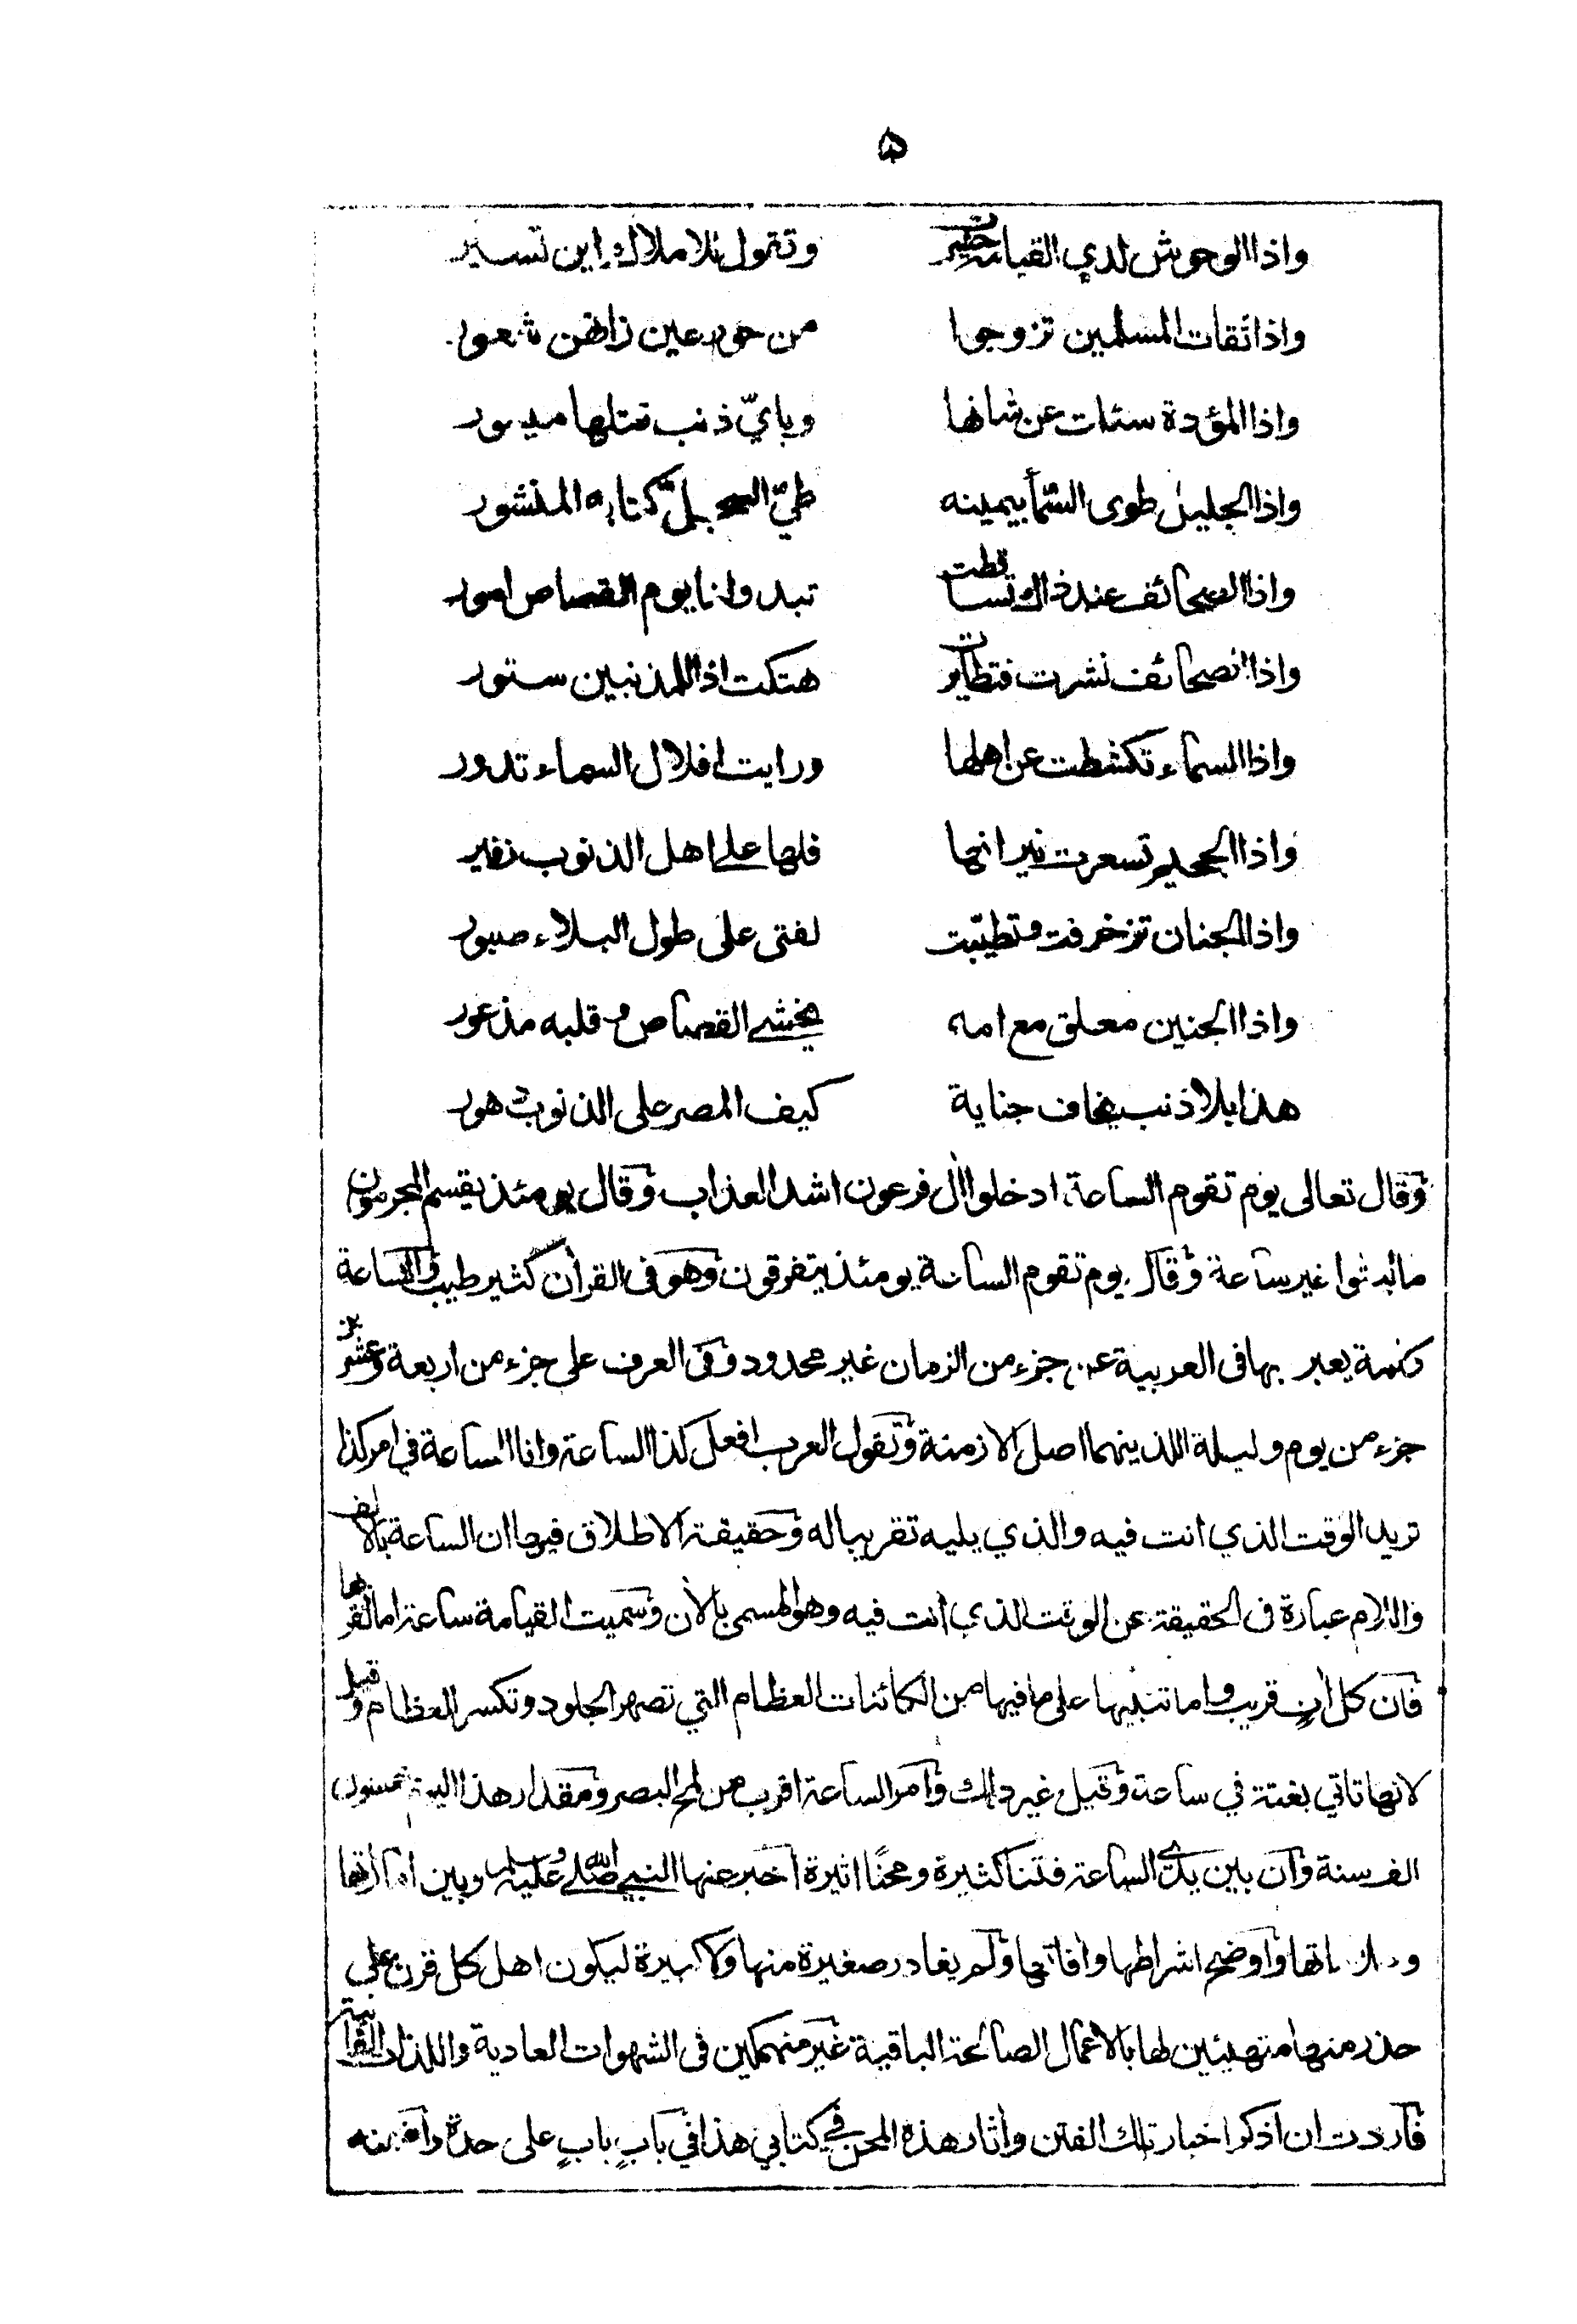 ۵
واذا الوحوش لدي القيامة حشرت وتقول للاملاك اين تسير
واذا تقات المسلمين تزوجوا من حور عين زانهن شعور
واذا المؤدة سئلت عن شانها وبايّ ذنب قتلها ميسور
واذا الجليل طوى السّمأ بيمينه طيّ السجل كتابه المنشور
واذا الصحائف عند ذاك تساقطت تبدو لنا يوم القصاص امور
واذا الصحائف نشرت فتطايرت هتكت اذا للمذنبين ستور
واذا السماء تكشطت عن اهلها ورايت افلاك السماء تدور
واذا الجحيم تسعرت نيرانها فلها على اهل الذنوب زفير
واذا الجنان تزخرفت وتطيّبت لفتى على طول البلاء صبور
واذا الجنين معلق مع امه يخشى القصاص وقلبه مذعور
هذا بلا ذنب يخاف جناية كيف المصر على الذنوب دهور
وقال تعالى يوم تقوم الساعة ادخلوا أل فرعون اشد العذاب وقال يومئذ يقسم المجرمون
مالبثوا غير ساعة وقال يوم تقوم الساعة يومئذ يتفرقون وهو فى القرأن كثير طيب والساعة
كلمة يعبر بها فى العربية عن جزء من الزمان غير محدود وفى العرف على جزء من اربعة وعشرين
جزء من يوم وليلة اللذين هما اصل الازمنة وتقول العرب افعل كذا الساعة وانا الساعة في امر كذا
تريد الوقت الذي انت فيه والذي يليه تقريبا له وحقيقة الاطلاق فيها ان الساعة بالالف
واللام عبارة فى الحقيقة عن الوقت الذي أنت فيه وهو المسمى بالأن وسميت القيامة ساعة اما لقربها
فان كل أت قريب واما تنبيها على ما فيها من الكائنات العظام التي تصهر الجلود وتكسر العظام وقيل
لانها تاتي بغتة في ساعة وقيل غير ذلك وامر الساعة اقرب من لمح البصر ومقدار هذا اليوم خمسون
الف سنة وان بين يدي الساعة فتنا كثيرة ومحنًا اثيرة أخبر عنها النبي صلى الله عليه وسلم وبين أماراتها
وعلاماتها واوضح اشراطها وافاتها ولم يغادر صغيرة منها ولا كبيرة ليكون اهل كل قرن على
حذر منها متهيئين لها بالاعمال الصالحة الباقية غير منهمكين فى الشهوات العادية واللذات الفانية
فاردت ان اذكر اخبار تلك الفتن وأثار هذه المحن في كتابي هذا في بابٍ بابٍ على حدة